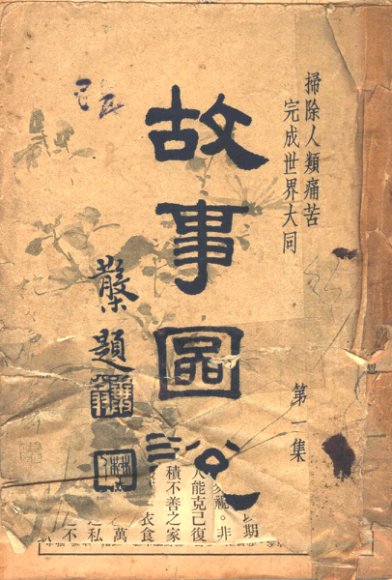 掃除人類痛苦
完成世界大同
第一集
故事圖說
題
期
視。非
人能克己復
積不善之家
衣食
萬
私
不